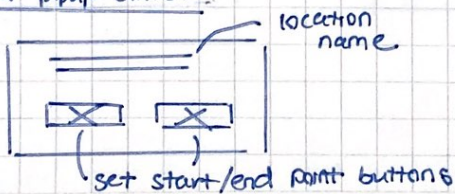 location
name
set start/end point buttons